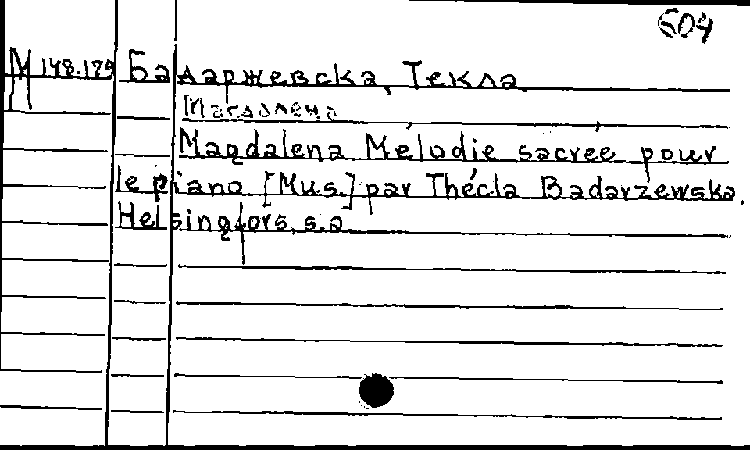 604
М 148.129 Бадаржевска, Текла
Магдалена
Magdalena Mélodie sacrée pour
le piano [Mus.] par Thécla Badarzewska.
Helsingfors, s.a